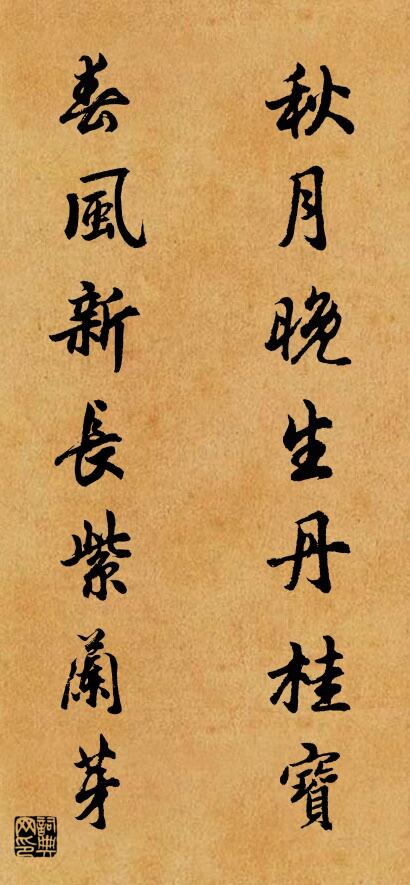 秋月晚生丹桂寶
春風新長紫蘭芽
詞典网印